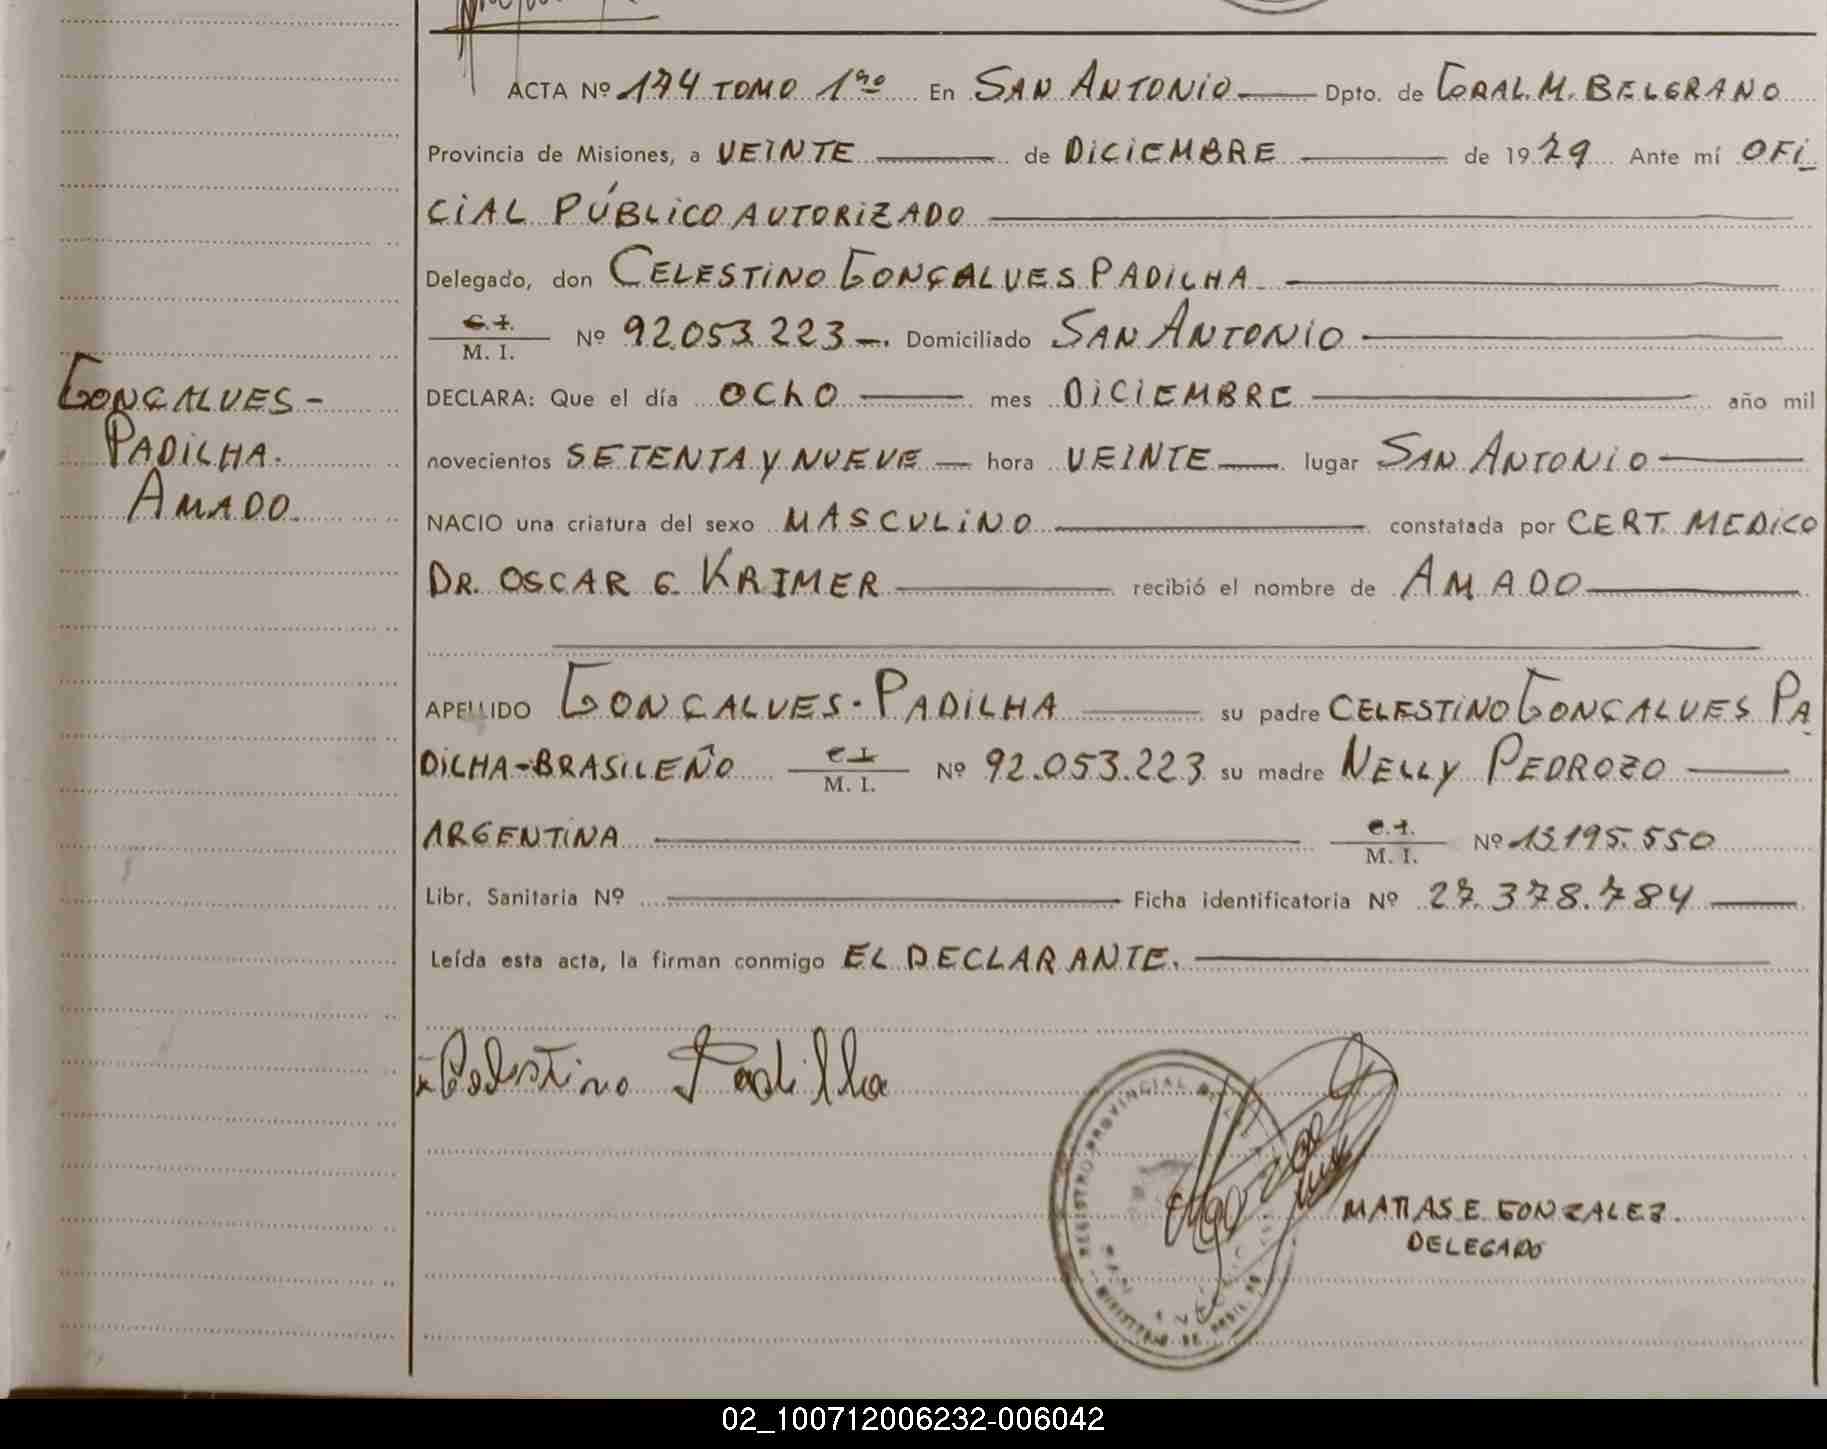 ACTA Nº 174 TOMO 1ro En SAN ANTONIO Dpto. de GRAL. M. BELGRANO
Provincia de Misiones, a VEINTE de DICIEMBRE de 1979 Ante mí OFI-
CIAL PÚBLICO AUTORIZADO
Delegado, don CELESTINO GONÇALVES PADILHA
C.I.
M. I. Nº 92.053.223 Domiciliado SAN ANTONIO
DECLARA: Que el día OCHO mes DICIEMBRE año mil
novecientos SETENTA Y NUEVE hora VEINTE lugar SAN ANTONIO
NACIO una criatura del sexo MASCULINO constatada por CERT. MEDICO
DR. OSCAR G. KRIMER recibió el nombre de AMADO
APELLIDO GONÇALVES-PADILHA su padre CELESTINO GONÇALVES PA
DILHA-BRASILEÑO C I
M. I. Nº 92.053.223 su madre NELLY PEDROZO
ARGENTINA C.I.
M. I. Nº 13.195.550
Libr. Sanitaria Nº Ficha identificatoria Nº 27.378.784
Leída esta acta, la firman conmigo EL DECLARANTE.
GONÇALVES-
PADILHA.
AMADO.
Celestino Padilha
REGISTRO PROVINCIAL DE
MATIAS E. GONZALEZ.
DELEGADO
02_100712006232-006042